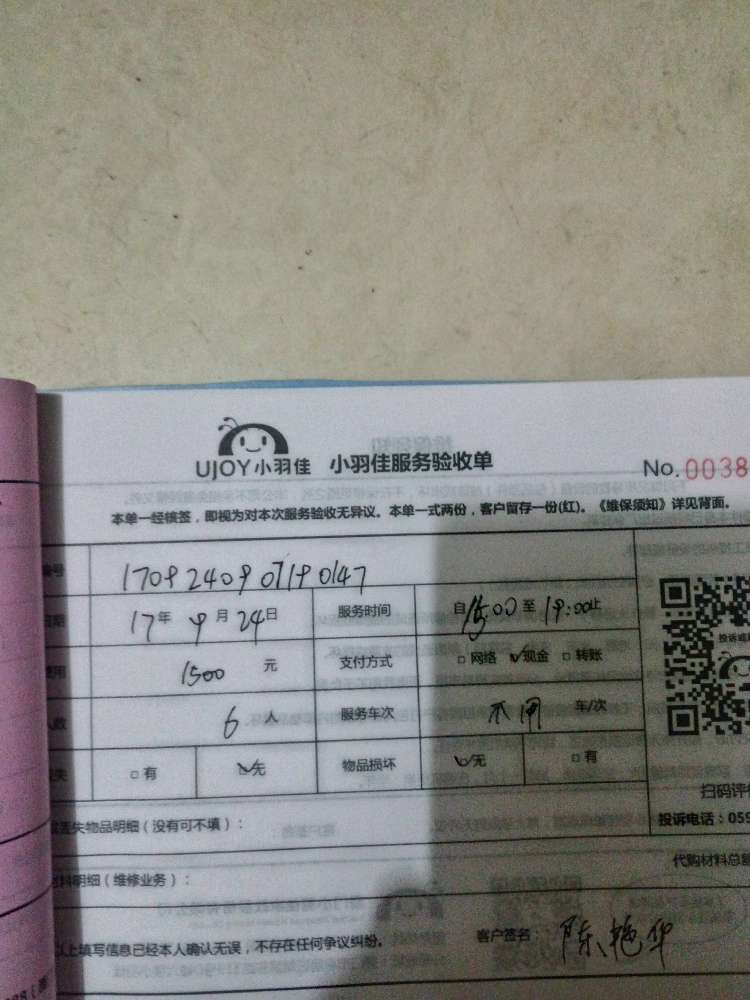 UJOY小羽佳 小羽佳服务验收单 No.0038
本单一经核签，即视为对本次服务验收无异议。本单一式两份，客户留存一份(红)。《维保须知》详见背面。
编号 1709240907190147
日期 17年9月24日 服务时间 自15:00至19:00止
费用 1500 元 支付方式 □网络 ☑现金 □转账
人数 6 人 服务车次 不用 车/次
□有 ☑无 物品损坏 ☑无 □有
投诉或
扫码评价
失物品明细（没有可不填）： 投诉电话：059
代购材料总额
材料明细（维修业务）：
以上填写信息已经本人确认无误，不存在任何争议纠纷。 客户签名：陈艳华